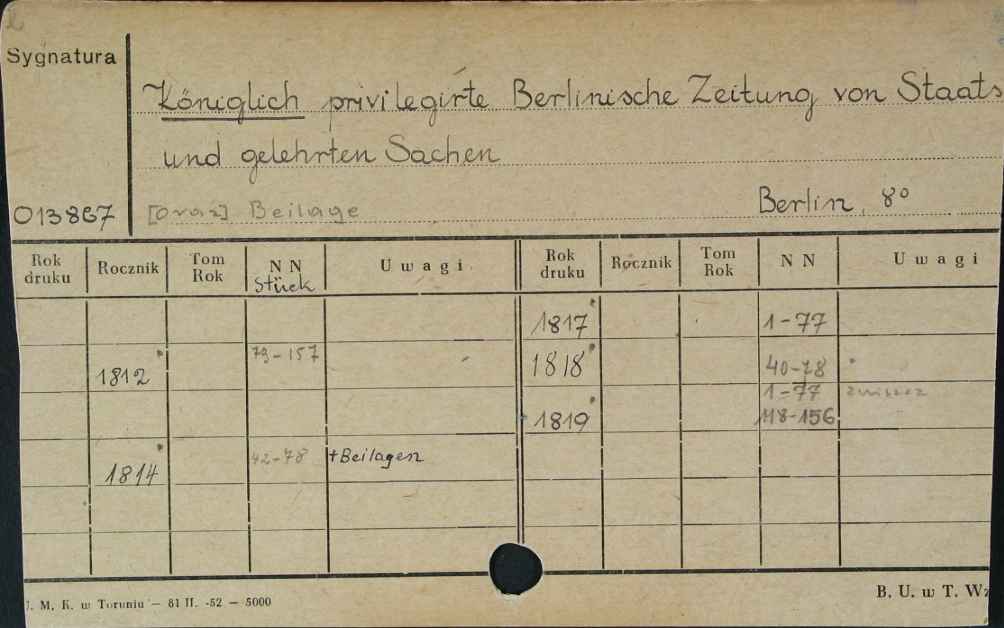 Sygnatura
Königlich privilegirte Berlinische Zeitung von Staats
und gelehrten Sachen
013867 [oraz] Beilage Berlin, 8°
Rok druku Rocznik Tom Rok NN Stück Uwagi Rok druku Rocznik Tom Rok NN Uwagi
1817 1-77
1812 79-157 1818 40-78
1819 1-77 zniszcz
118-156
1814 42-78 +Beilagen
. M. K. w Toruniu — 81 II. -52 — 5000
B. U. w T. Wz